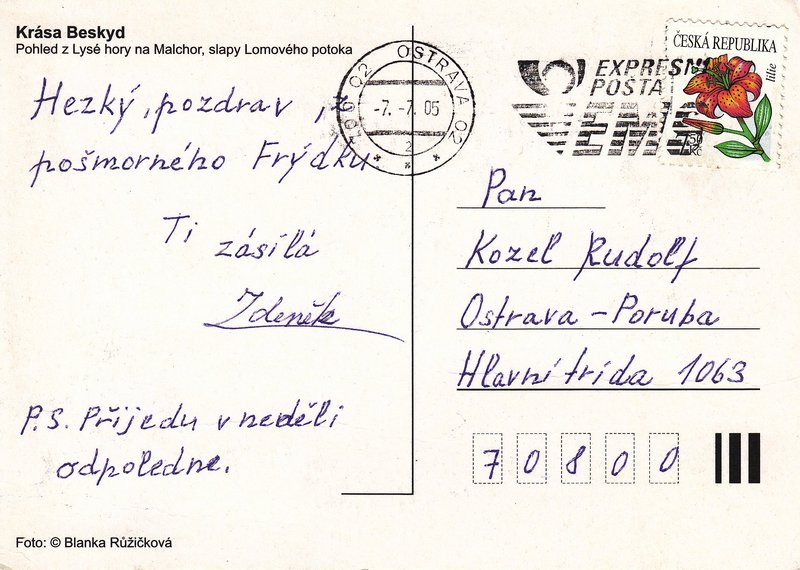 Krása Beskyd
Pohled z Lysé hory na Malchor, slapy Lomového potoka
Hezký, pozdrav,
pošmorného Frýdku
Ti zásílá
Zdeněk
P.S. Přijedu v neděli
odpoledne.
Foto: © Blanka Růžičková
OSTRAVA 02
-7.-7.05
2
EXPRESNÍ
POŠTA
EMS
ČESKÁ REPUBLIKA
lilie
Pan
Kozel Rudolf
Ostrava - Poruba
Hlavní třída 1063
70800